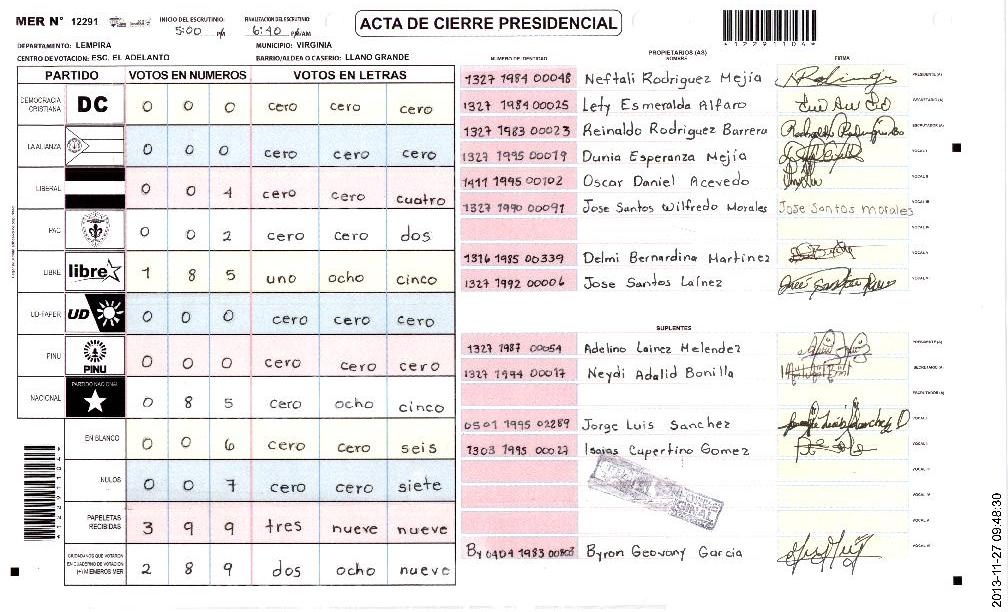 MER N° 12291
INICIO DEL ESCRUTINIO: 5:00
FINALIZACION DEL ESCRUTINIO: 6:40
ACTA DE CIERRE PRESIDENCIAL
DEPARTAMENTO: LEMPIRA
MUNICIPIO: VIRGINIA
CENTRO DE VOTACION: ESC. EL ADELANTO
BARRIO/ALDEA O CASERIO: LLANO GRANDE
PARTIDO VOTOS EN NUMEROS VOTOS EN LETRAS
DEMOCRACIA CRISTIANA DC 0 0 0 cero cero cero
LA ALIANZA 0 0 0 cero cero cero
LIBERAL 0 0 4 cero cero cuatro
PAC 0 0 2 cero cero dos
LIBRE libre 1 8 5 uno ocho cinco
UD-FAPER UD 0 0 0 cero cero cero
PINU PINU 0 0 0 cero cero cero
NACIONAL PARTIDO NACIONAL 0 8 5 cero ocho cinco
EN BLANCO 0 0 6 cero cero seis
NULOS 0 0 7 cero cero siete
PAPELETAS RECIBIDAS 3 9 9 tres nueve nueve
CIUDADANOS QUE VOTARON EN CUADERNO DE VOTACION (+) MIEMBROS MER 2 8 9 dos ocho nueve
PROPIETARIOS (AS)
NUMERO DE IDENTIDAD NOMBRE FIRMA
1327 1984 00048 Neftali Rodriguez Mejía PRESIDENTE (A)
1327 1984 00025 Lety Esmeralda Alfaro SECRETARIO (A)
1327 1983 00023 Reinaldo Rodriguez Barrera ESCRUTADOR (A)
1327 1995 00079 Dunia Esperanza Mejía VOCAL I
1411 1995 00102 Oscar Daniel Acevedo VOCAL II
1327 1990 00091 Jose Santos Wilfredo Morales Jose Santos morales VOCAL III
VOCAL IV
1316 1985 00339 Delmi Bernardina Martinez VOCAL V
1327 1992 00006 Jose Santos Laínez VOCAL VI
SUPLENTES
1327 1987 00054 Adelino Lainez Melendez PRESIDENTE (A)
1327 1994 00017 Neydi Adalid Bonilla SECRETARIO (A)
ESCRUTADOR (A)
0501 1995 02289 Jorge Luis Sanchez VOCAL I
1303 1995 00027 Isaias Cupertino Gomez VOCAL II
VOCAL III
VOCAL IV
VOCAL V
0404 1983 00803 Byron Geovany Garcia VOCAL VI
2013-11-27 09:48:30